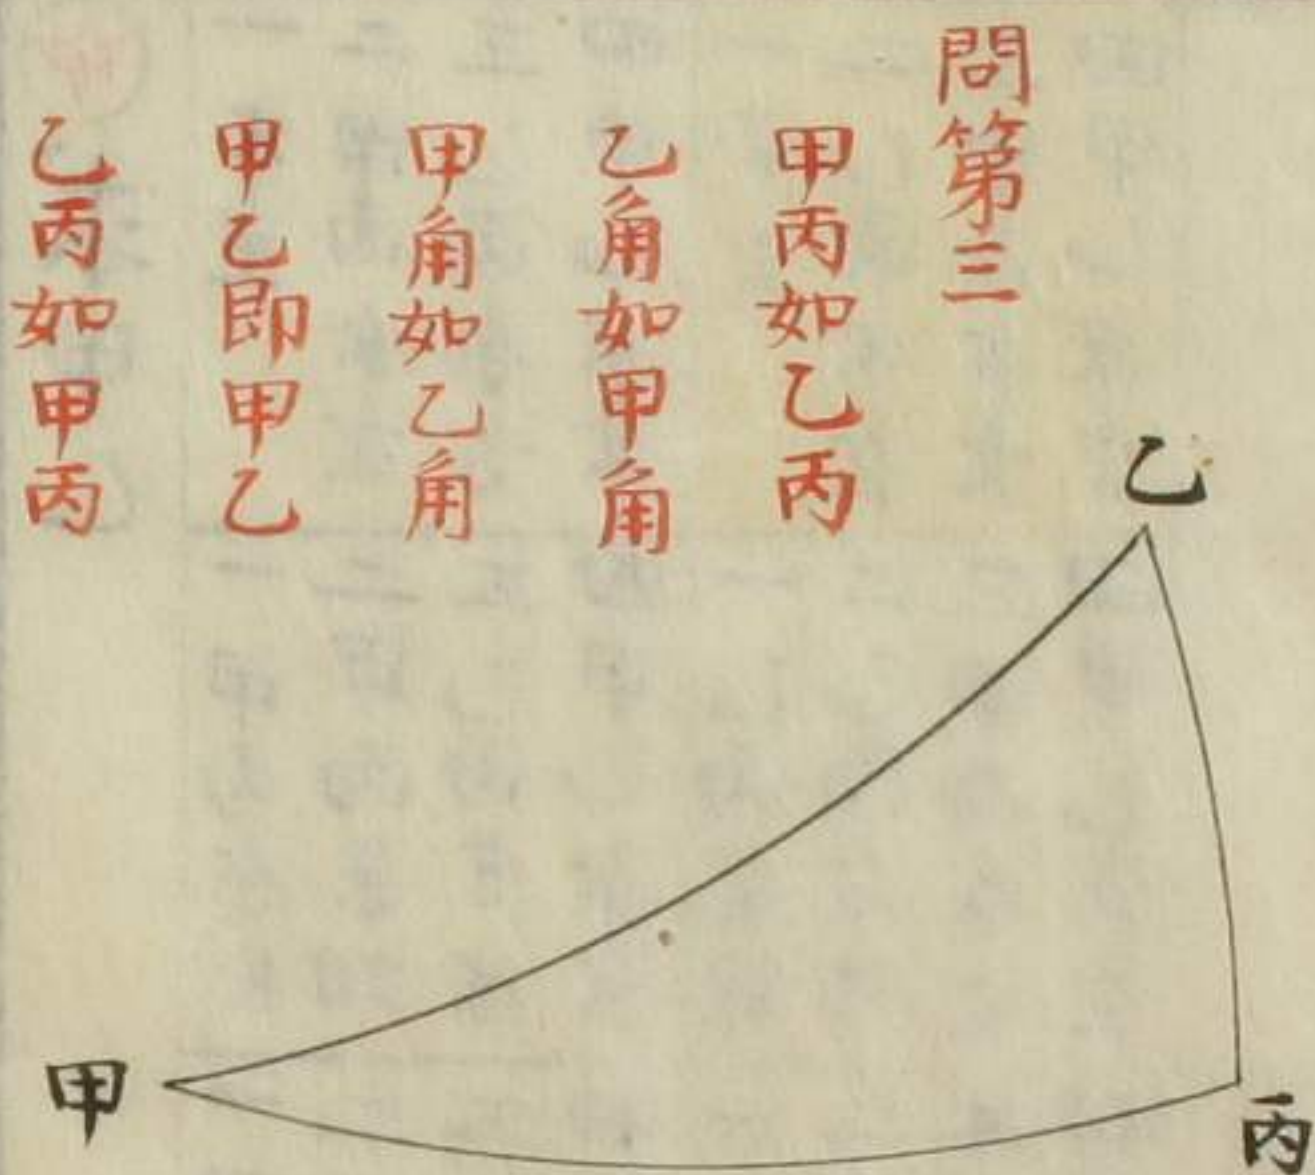 問第三
甲丙如乙丙
乙角如甲角
甲角如乙角
甲乙即甲乙
乙丙如甲丙
乙
甲
丙